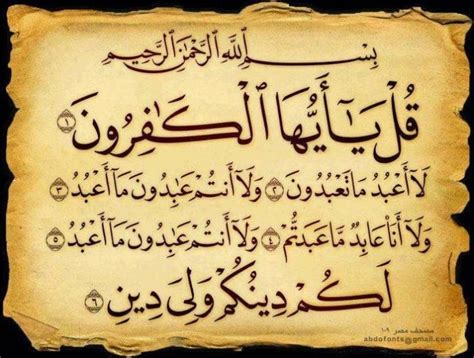 بِسْمِ ٱللَّهِ ٱلرَّحْمَٰنِ ٱلرَّحِيمِ
قُلْ يَٰٓأَيُّهَا ٱلْكَٰفِرُونَ ١
لَآ أَعْبُدُ مَا تَعْبُدُونَ ٢ وَلَآ أَنتُمْ عَٰبِدُونَ مَآ أَعْبُدُ ٣
وَلَآ أَنَا۠ عَابِدٌ مَّا عَبَدتُّمْ ٤ وَلَآ أَنتُمْ عَٰبِدُونَ مَآ أَعْبُدُ ٥
لَكُمْ دِينُكُمْ وَلِىَ دِينِ ٦
مصحف مصر ١٠٩
abdofonts@gmail.com